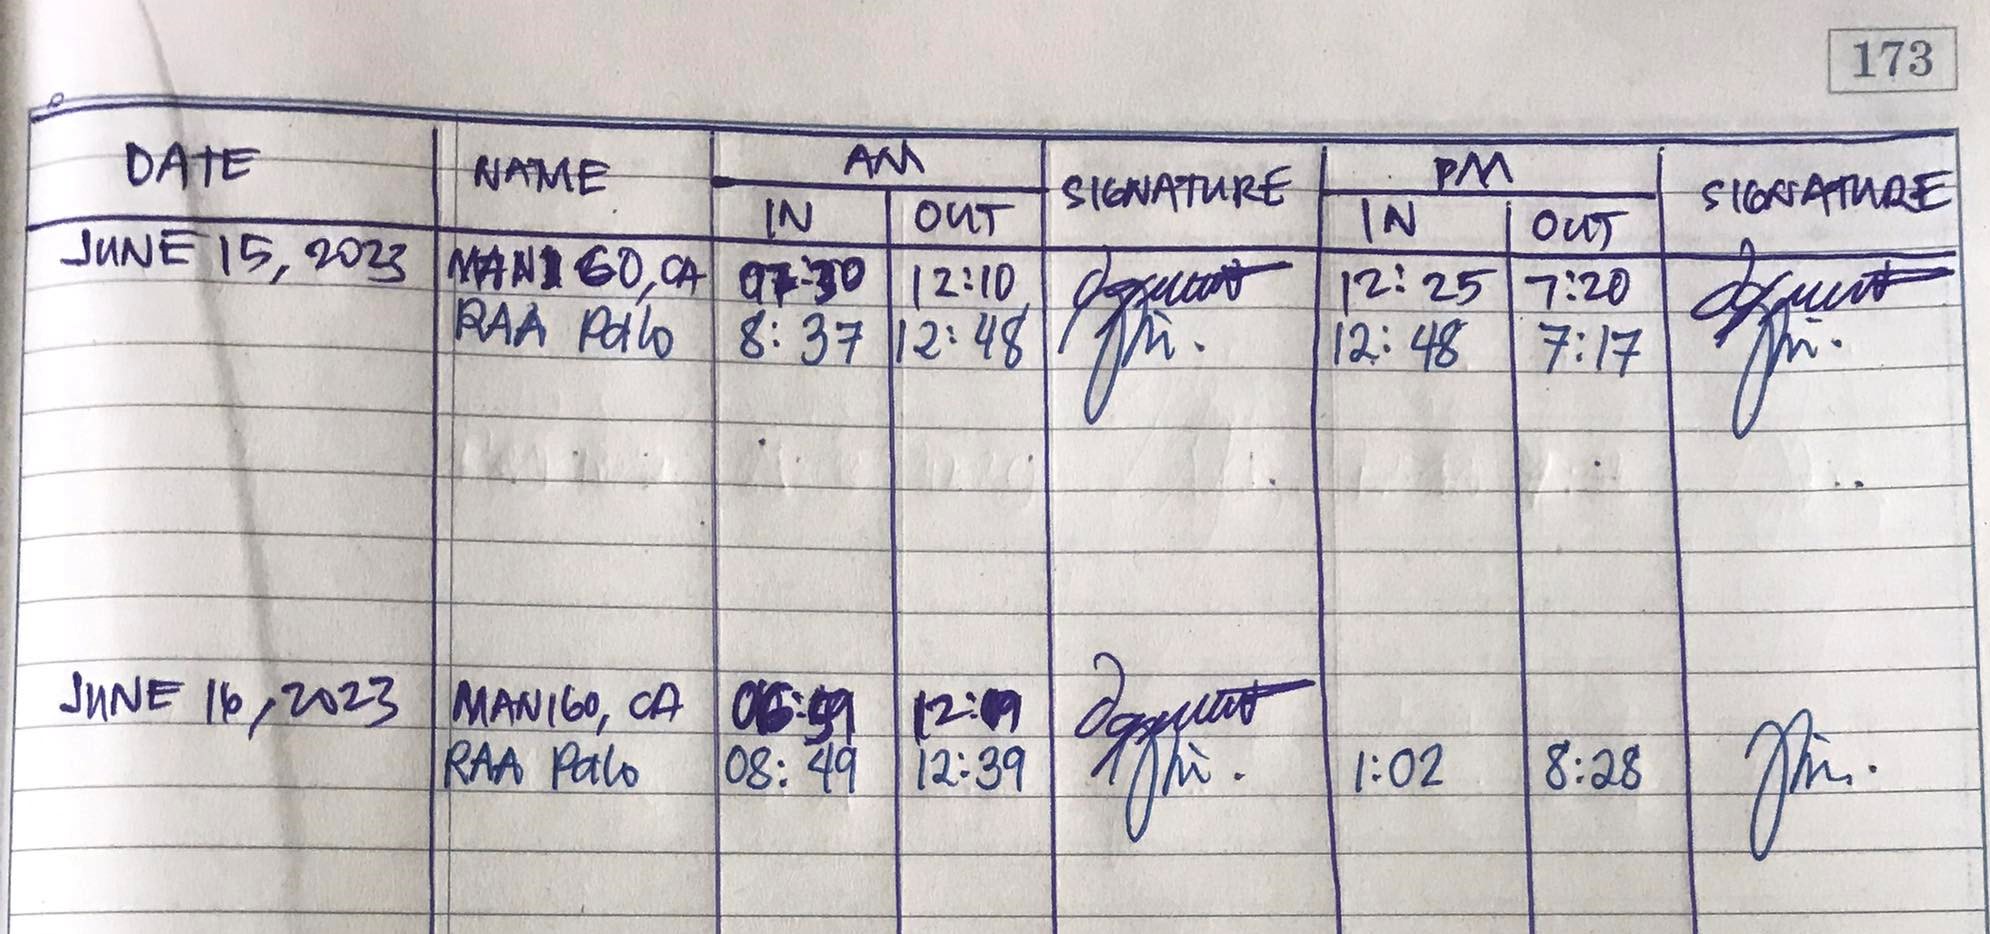 173
DATE NAME AM SIGNATURE PM SIGNATURE
IN OUT IN OUT
JUNE 15, 2023 MANIGO, CA 07:30 12:10 12:25 7:20
RAA Palo 8:37 12:48 12:48 7:17
JUNE 16, 2023 MANIGO, CA
RAA Palo 08:49 12:39 1:02 8:28